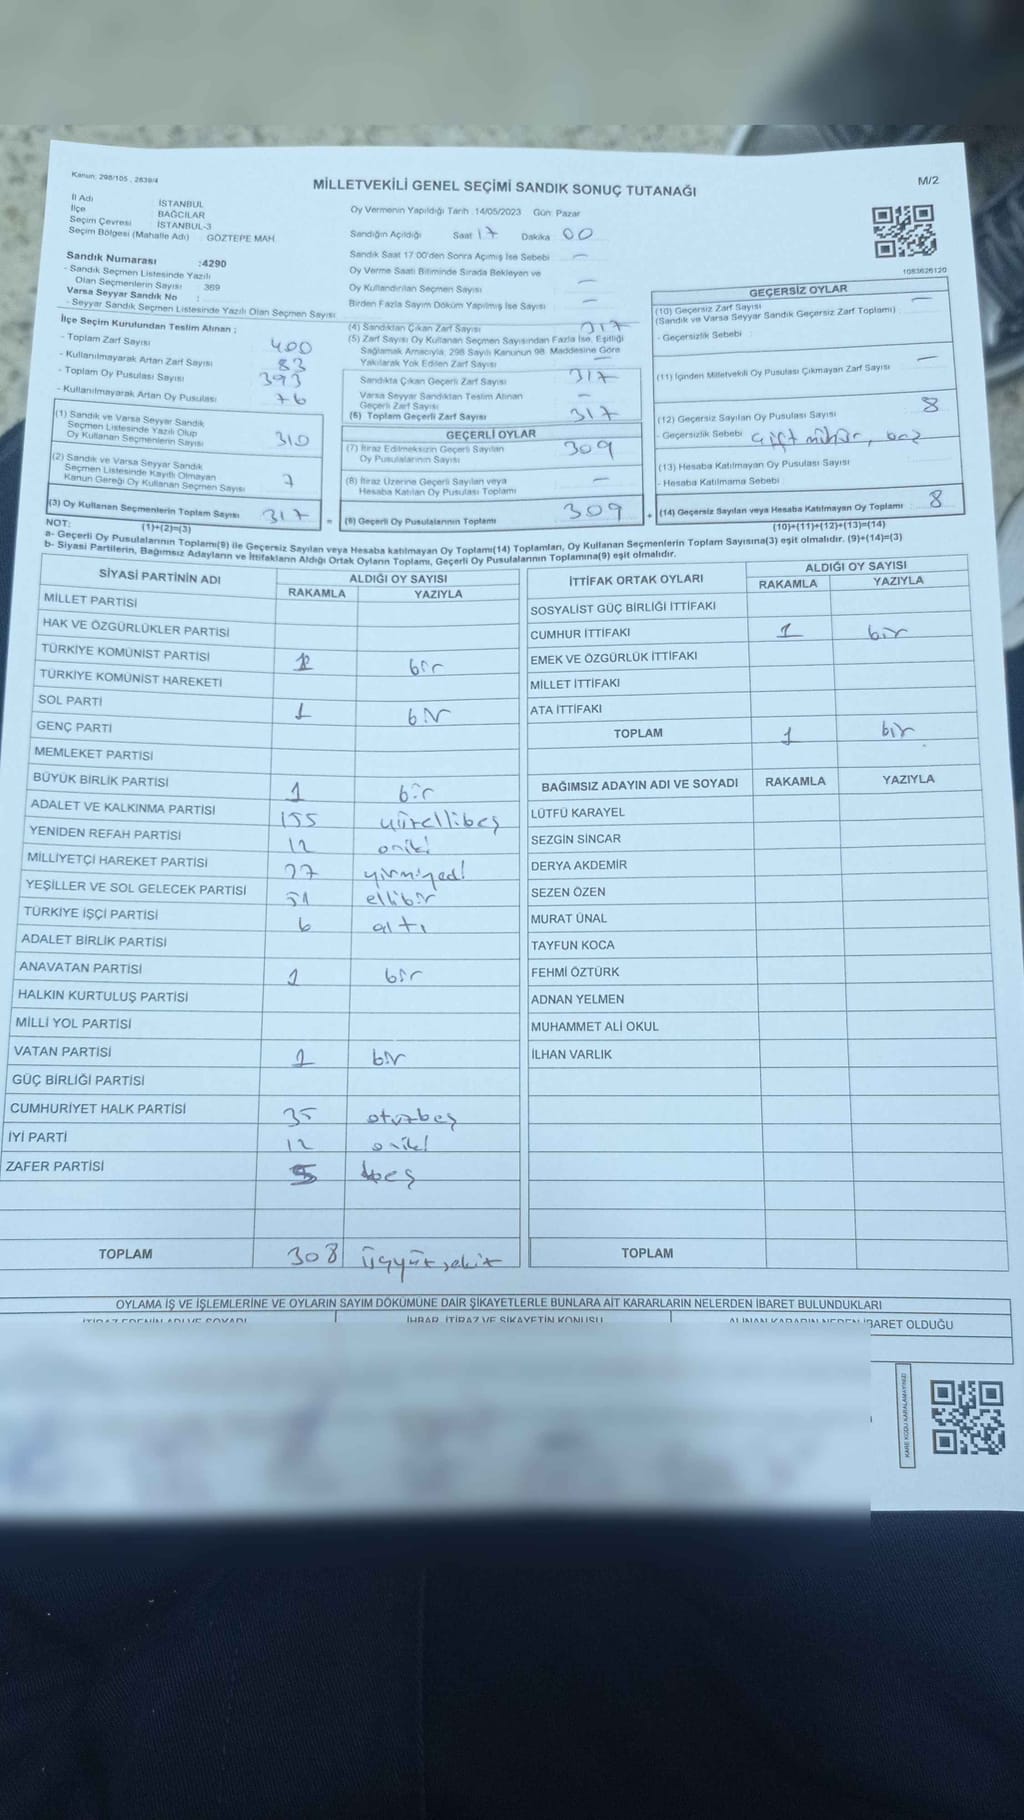 Kanun: 298/105 , 2839/4
MİLLETVEKİLİ GENEL SEÇİMİ SANDIK SONUÇ TUTANAĞI
M/2
İl Adı İSTANBUL
İlçe BAĞCILAR
Seçim Çevresi İSTANBUL-3
Seçim Bölgesi (Mahalle Adı) GÖZTEPE MAH.
Sandık Numarası :4290
- Sandık Seçmen Listesinde Yazılı
Olan Seçmenlerin Sayısı : 369
Varsa Seyyar Sandık No :
- Seyyar Sandık Seçmen Listesinde Yazılı Olan Seçmen Sayısı :
Oy Vermenin Yapıldığı Tarih :14/05/2023 Gün: Pazar
Sandığın Açıldığı Saat 17 Dakika 00
Sandık Saat 17:00'den Sonra Açımış İse Sebebi —
Oy Verme Saati Bitiminde Sırada Bekleyen ve
Oy Kullandırılan Seçmen Sayısı —
Birden Fazla Sayım Döküm Yapılmış İse Sayısı —
1083626120
İlçe Seçim Kurulundan Teslim Alınan ;
- Toplam Zarf Sayısı 400
- Kullanılmayarak Artan Zarf Sayısı 83
- Toplam Oy Pusulası Sayısı 393
- Kullanılmayarak Artan Oy Pusulası 76
(1) Sandık ve Varsa Seyyar Sandık
Seçmen Listesinde Yazılı Olup
Oy Kullanan Seçmenlerin Sayısı 310
(2) Sandık ve Varsa Seyyar Sandık
Seçmen Listesinde Kayıtlı Olmayan
Kanun Gereği Oy Kullanan Seçmen Sayısı 7
(3) Oy Kullanan Seçmenlerin Toplam Sayısı 317 =
(1)+(2)=(3)
(4) Sandıktan Çıkan Zarf Sayısı 317
(5) Zarf Sayısı Oy Kullanan Seçmen Sayısından Fazla İse, Eşitliği
Sağlamak Amacıyla, 298 Sayılı Kanunun 98. Maddesine Göre
Yakılarak Yok Edilen Zarf Sayısı —
Sandıkta Çıkan Geçerli Zarf Sayısı 317
Varsa Seyyar Sandıktan Teslim Alınan
Geçerli Zarf Sayısı —
(6) Toplam Geçerli Zarf Sayısı 317
GEÇERLİ OYLAR
(7) İtiraz Edilmeksizin Geçerli Sayılan
Oy Pusulalarının Sayısı 309
(8) İtiraz Üzerine Geçerli Sayılan veya
Hesaba Katılan Oy Pusulası Toplamı —
(9) Geçerli Oy Pusulalarının Toplamı 309 +
GEÇERSİZ OYLAR
(10) Geçersiz Zarf Sayısı —
(Sandık ve Varsa Seyyar Sandık Geçersiz Zarf Toplamı)
- Geçersizlik Sebebi :
(11) İçinden Milletvekili Oy Pusulası Çıkmayan Zarf Sayısı —
(12) Geçersiz Sayılan Oy Pusulası Sayısı 8
- Geçersizlik Sebebi çift mühür,
(13) Hesaba Katılmayan Oy Pusulası Sayısı
- Hesaba Katılmama Sebebi
(14) Geçersiz Sayılan veya Hesaba Katılmayan Oy Toplamı 8
(10)+(11)+(12)+(13)=(14)
NOT:
a- Geçerli Oy Pusulalarının Toplamı(9) ile Geçersiz Sayılan veya Hesaba katılmayan Oy Toplamı(14) Toplamları, Oy Kullanan Seçmenlerin Toplam Sayısına(3) eşit olmalıdır. (9)+(14)=(3)
b- Siyasi Partilerin, Bağımsız Adayların ve İttifakların Aldığı Ortak Oyların Toplamı, Geçerli Oy Pusulalarının Toplamına(9) eşit olmalıdır.
SİYASİ PARTİNİN ADI ALDIĞI OY SAYISI
RAKAMLA YAZIYLA
MİLLET PARTİSİ
HAK VE ÖZGÜRLÜKLER PARTİSİ
TÜRKİYE KOMÜNİST PARTİSİ 1 bir
TÜRKİYE KOMÜNİST HAREKETİ
SOL PARTİ 1 bir
GENÇ PARTİ
MEMLEKET PARTİSİ
BÜYÜK BİRLİK PARTİSİ 1 bir
ADALET VE KALKINMA PARTİSİ 155 yüzellibeş
YENİDEN REFAH PARTİSİ 12 oniki
MİLLİYETÇİ HAREKET PARTİSİ 27 yirmiyedi
YEŞİLLER VE SOL GELECEK PARTİSİ 51 ellibir
TÜRKİYE İŞÇİ PARTİSİ 6 altı
ADALET BİRLİK PARTİSİ
ANAVATAN PARTİSİ 1 bir
HALKIN KURTULUŞ PARTİSİ
MİLLİ YOL PARTİSİ
VATAN PARTİSİ 1 bir
GÜÇ BİRLİĞİ PARTİSİ
CUMHURİYET HALK PARTİSİ 35 otuzbeş
İYİ PARTİ 12 oniki
ZAFER PARTİSİ 5 beş
TOPLAM 308 üçyüzsekiz
İTTİFAK ORTAK OYLARI ALDIĞI OY SAYISI
RAKAMLA YAZIYLA
SOSYALİST GÜÇ BİRLİĞİ İTTİFAKI
CUMHUR İTTİFAKI 1 bir
EMEK VE ÖZGÜRLÜK İTTİFAKI
MİLLET İTTİFAKI
ATA İTTİFAKI
TOPLAM 1 bir
BAĞIMSIZ ADAYIN ADI VE SOYADI RAKAMLA YAZIYLA
LÜTFÜ KARAYEL
SEZGİN SİNCAR
DERYA AKDEMİR
SEZEN ÖZEN
MURAT ÜNAL
TAYFUN KOCA
FEHMİ ÖZTÜRK
ADNAN YELMEN
MUHAMMET ALİ OKUL
İLHAN VARLIK
TOPLAM
OYLAMA İŞ VE İŞLEMLERİNE VE OYLARIN SAYIM DÖKÜMÜNE DAİR ŞİKAYETLERLE BUNLARA AİT KARARLARIN NELERDEN İBARET BULUNDUKLARI
İTİRAZ EDENİN ADI VE SOYADI İHBAR, İTİRAZ VE ŞİKAYETİN KONUSU ALINAN KARARIN NEDEN İBARET OLDUĞU
KARE KODU KARALAMAYINIZ!